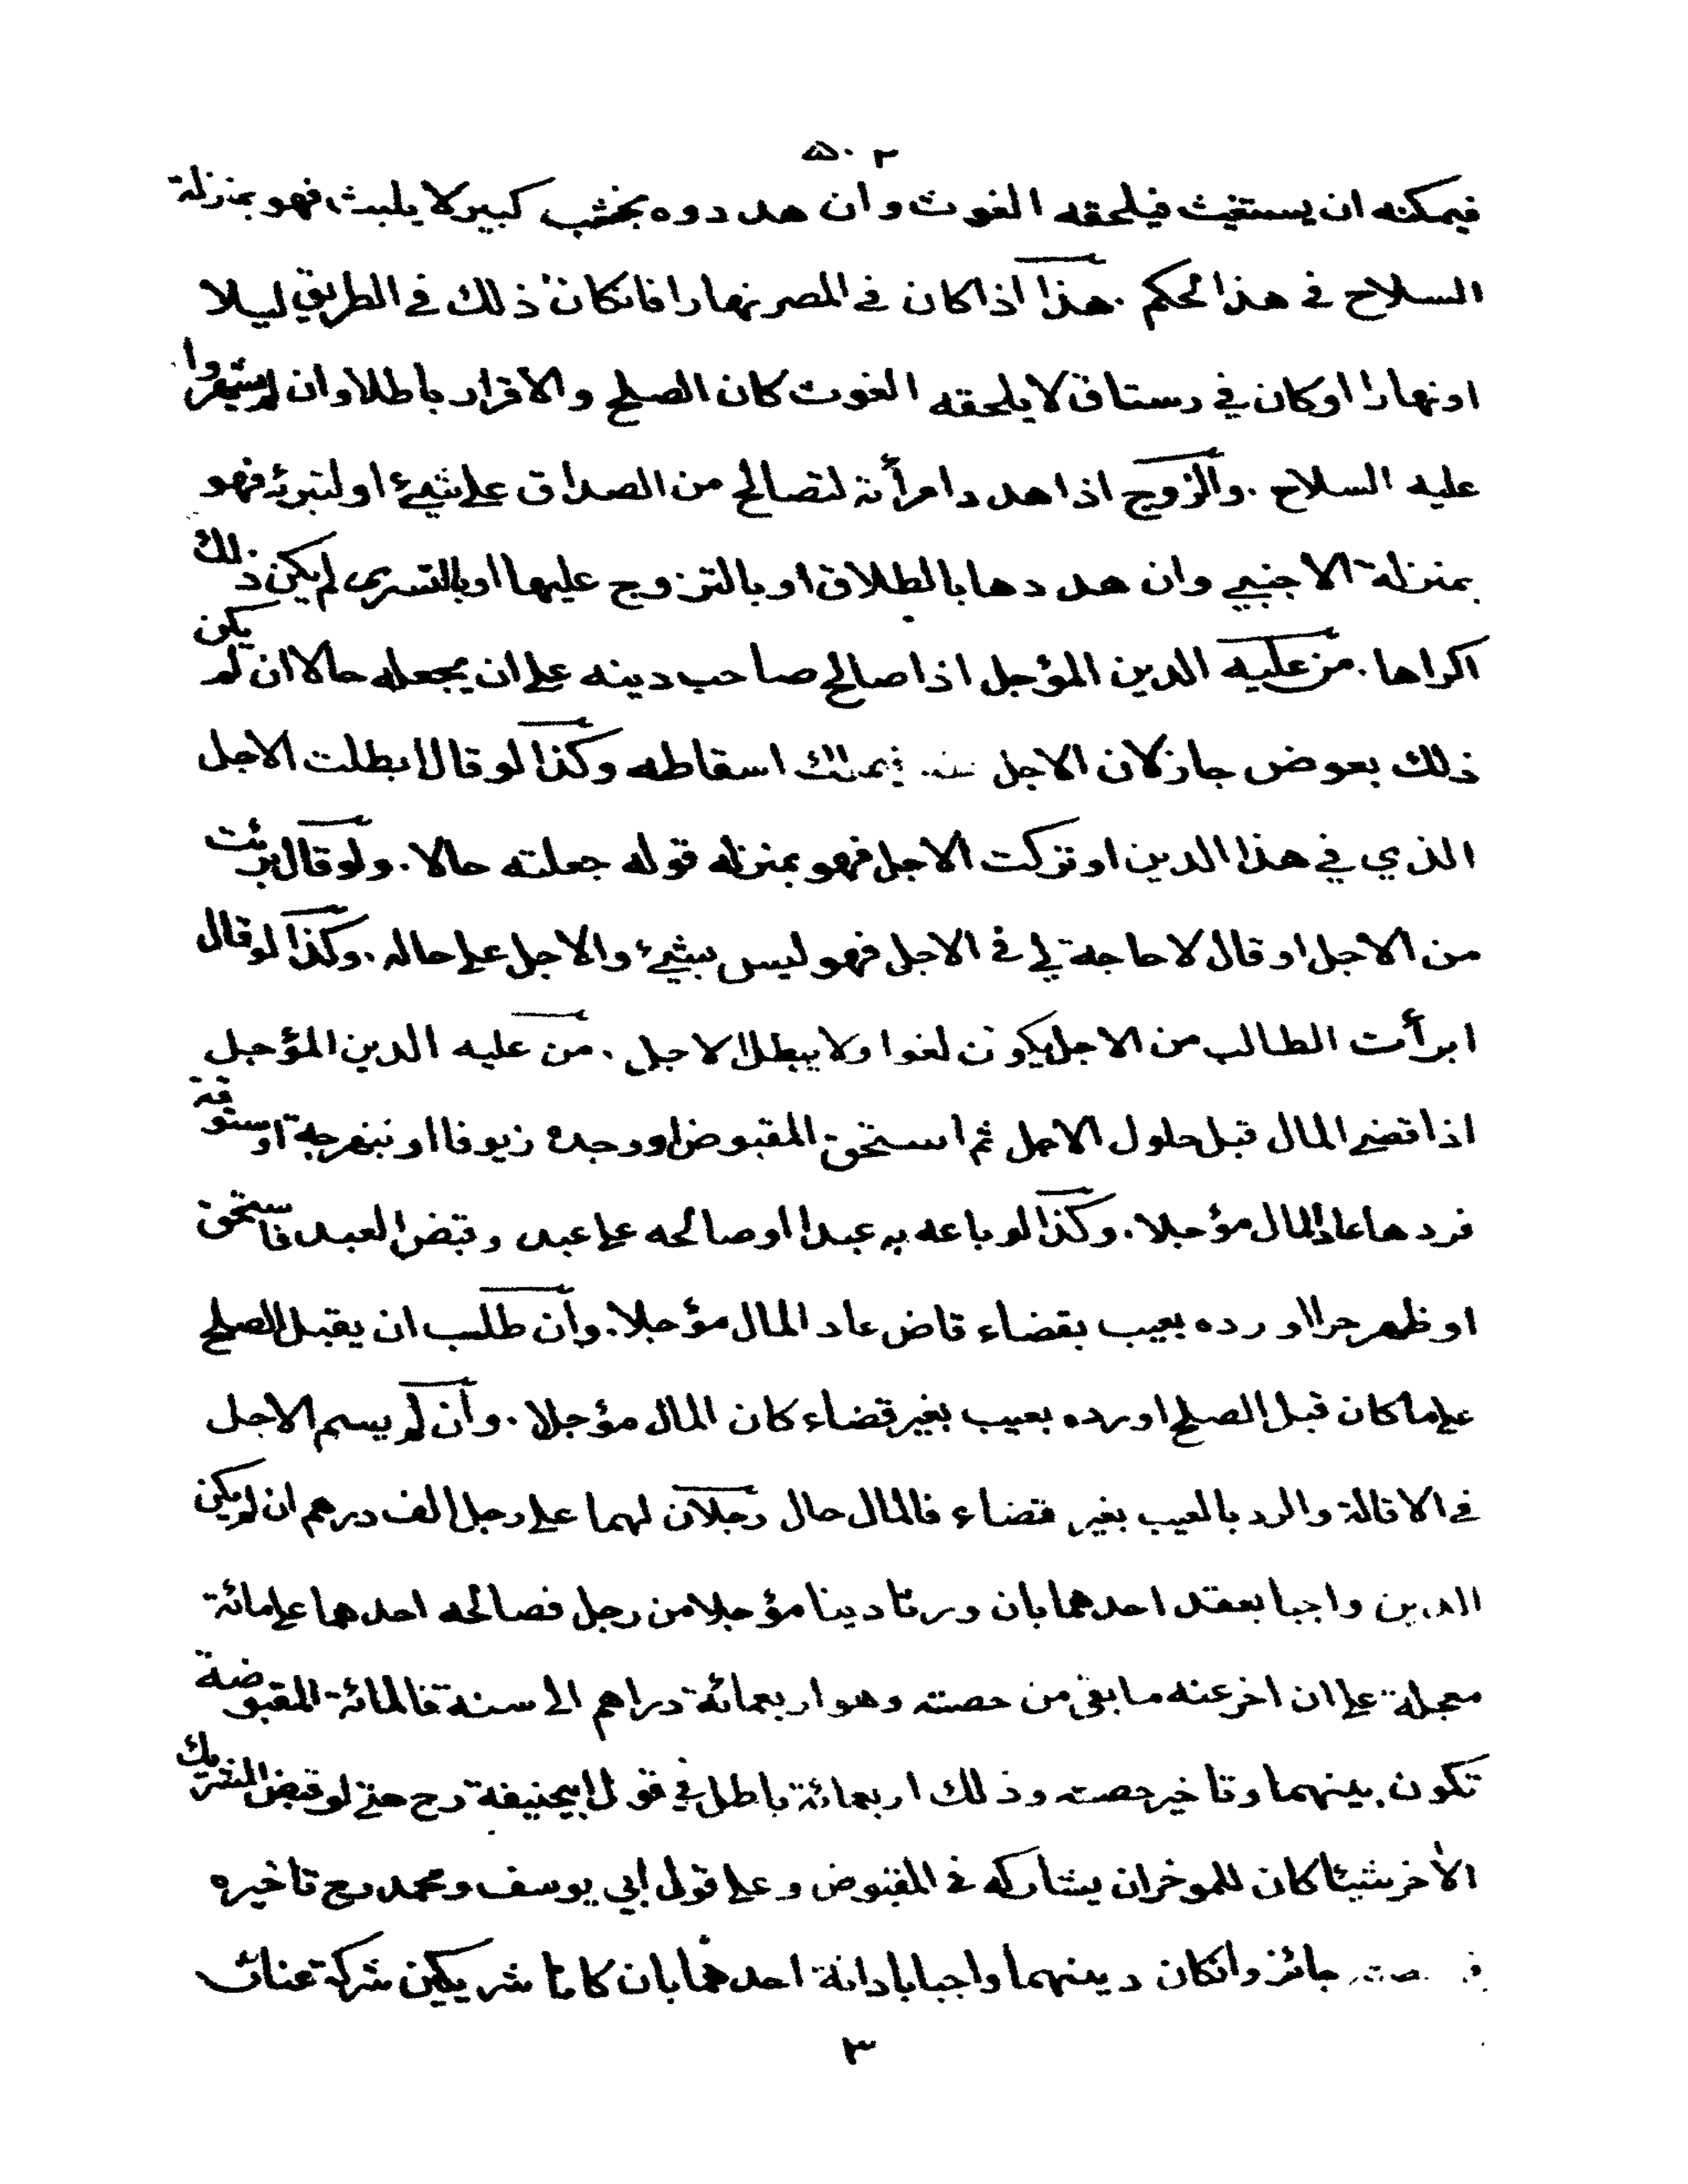 ٥٠٢
فيمكنه ان يستغيث فيلحقه الغوث وان هددوه بخشب كبير لا يلبث فهو بمنزلة
السلاح في هذا الحكم . هذا اذا كان في المصر نهارا فانكان ذلك في الطريق ليلا
او نهارا او كان في رستاق لا يلحقه الغوث كان الصلح والاقرار باطلا وان لم يشهروا
عليه السلاح . والزوج اذا هدد امرأته لتصالح من الصداق على شيء او لتبرئه فهو
بمنزلة الاجنبي وان هددها بالطلاق او بالتزوج عليها او بالتسري لم يكن ذلك
اكراها . من عليه الدين المؤجل اذا صالح صاحب دينه على ان يجعله حالا ان لم يكن
ذلك بعوض جاز لان الاجل فيملك اسقاطه وكذا لو قال ابطلت الاجل
الذي في هذا الدين او تركت الاجل فهو بمنزله قوله جعلته حالا . ولو قال برئت
من الاجل او قال لا حاجة لي في الاجل فهو ليس بشيء والاجل على حاله . وكذا لو قال
ابرأت الطالب من الاجل يكون لغوا ولا يبطل الاجل . من عليه الدين المؤجل
اذا قضى المال قبل حلول الاجل ثم استحق المقبوض او وجده زيوفا او نبهرجة او ستوقة
فردها عاد المال مؤجلا . وكذا لو باعه به عبدا او صالحه على عبد وقبض العبد فاستحق
او ظهر حرا او رده بعيب بقضاء قاض عاد المال مؤجلا . وان طلب ان يقبل الصلح
على ما كان قبل الصلح او رده بعيب بغير قضاء كان المال مؤجلا . وان لم يسم الاجل
في الاقالة والرد بالعيب بغير قضاء فالمال حال رجلان لهما على رجل الف درهم ان لم يكن
الدين واجبا بعقد احدهما بان ورثا دينا مؤجلا من رجل فصالحه احدهما على مائة
معجلة على ان اخر عنه ما بقي من حصته وهو اربعمائة دراهم الى سنة فالمائة المقبوضة
تكون بينهما وتاخير حصته وذلك اربعمائة باطل في قول ابيحنيفة رح حتى لو قبض الشريك
الآخر شيئا كان للموخر ان يشاركه في المقبوض وعلى قول ابي يوسف ومحمد رح تاخيره
جائز وانكان دينهما واجبا بادانة احدهما بان كانا شريكين شركة عنان
٣